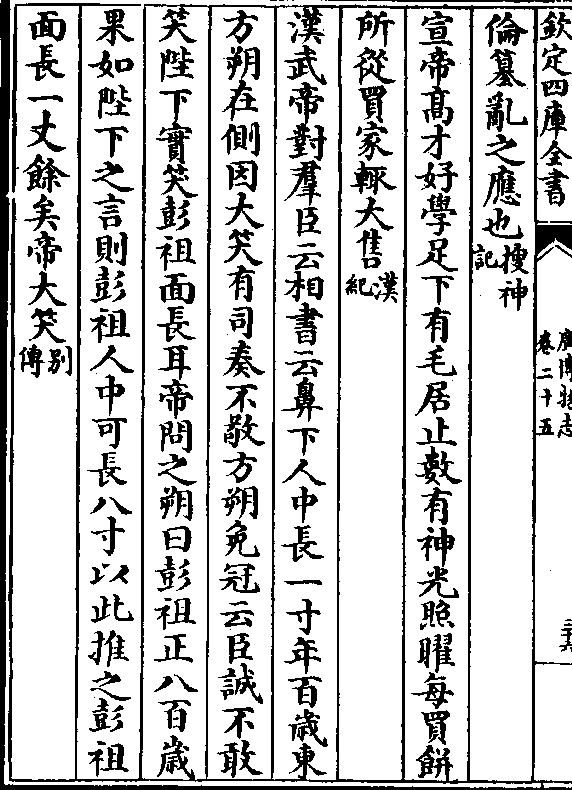 欽定四庫全書
廣博物志
卷二十五
倫簒亂之應也搜神
記
宣帝高才好學足下有毛居止數有神光照曜每買餅
所從買家輒大售漢
紀
漢武帝對羣臣云相書云鼻下人中長一寸年百歳東
方朔在側因大笑有司奏不敬方朔免冠云臣誠不敢
笑陛下實笑彭祖面長耳帝問之朔曰彭祖正八百歳
果如陛下之言則彭祖人中可長八寸以此推之彭祖
面長一丈餘矣帝大笑别
傳